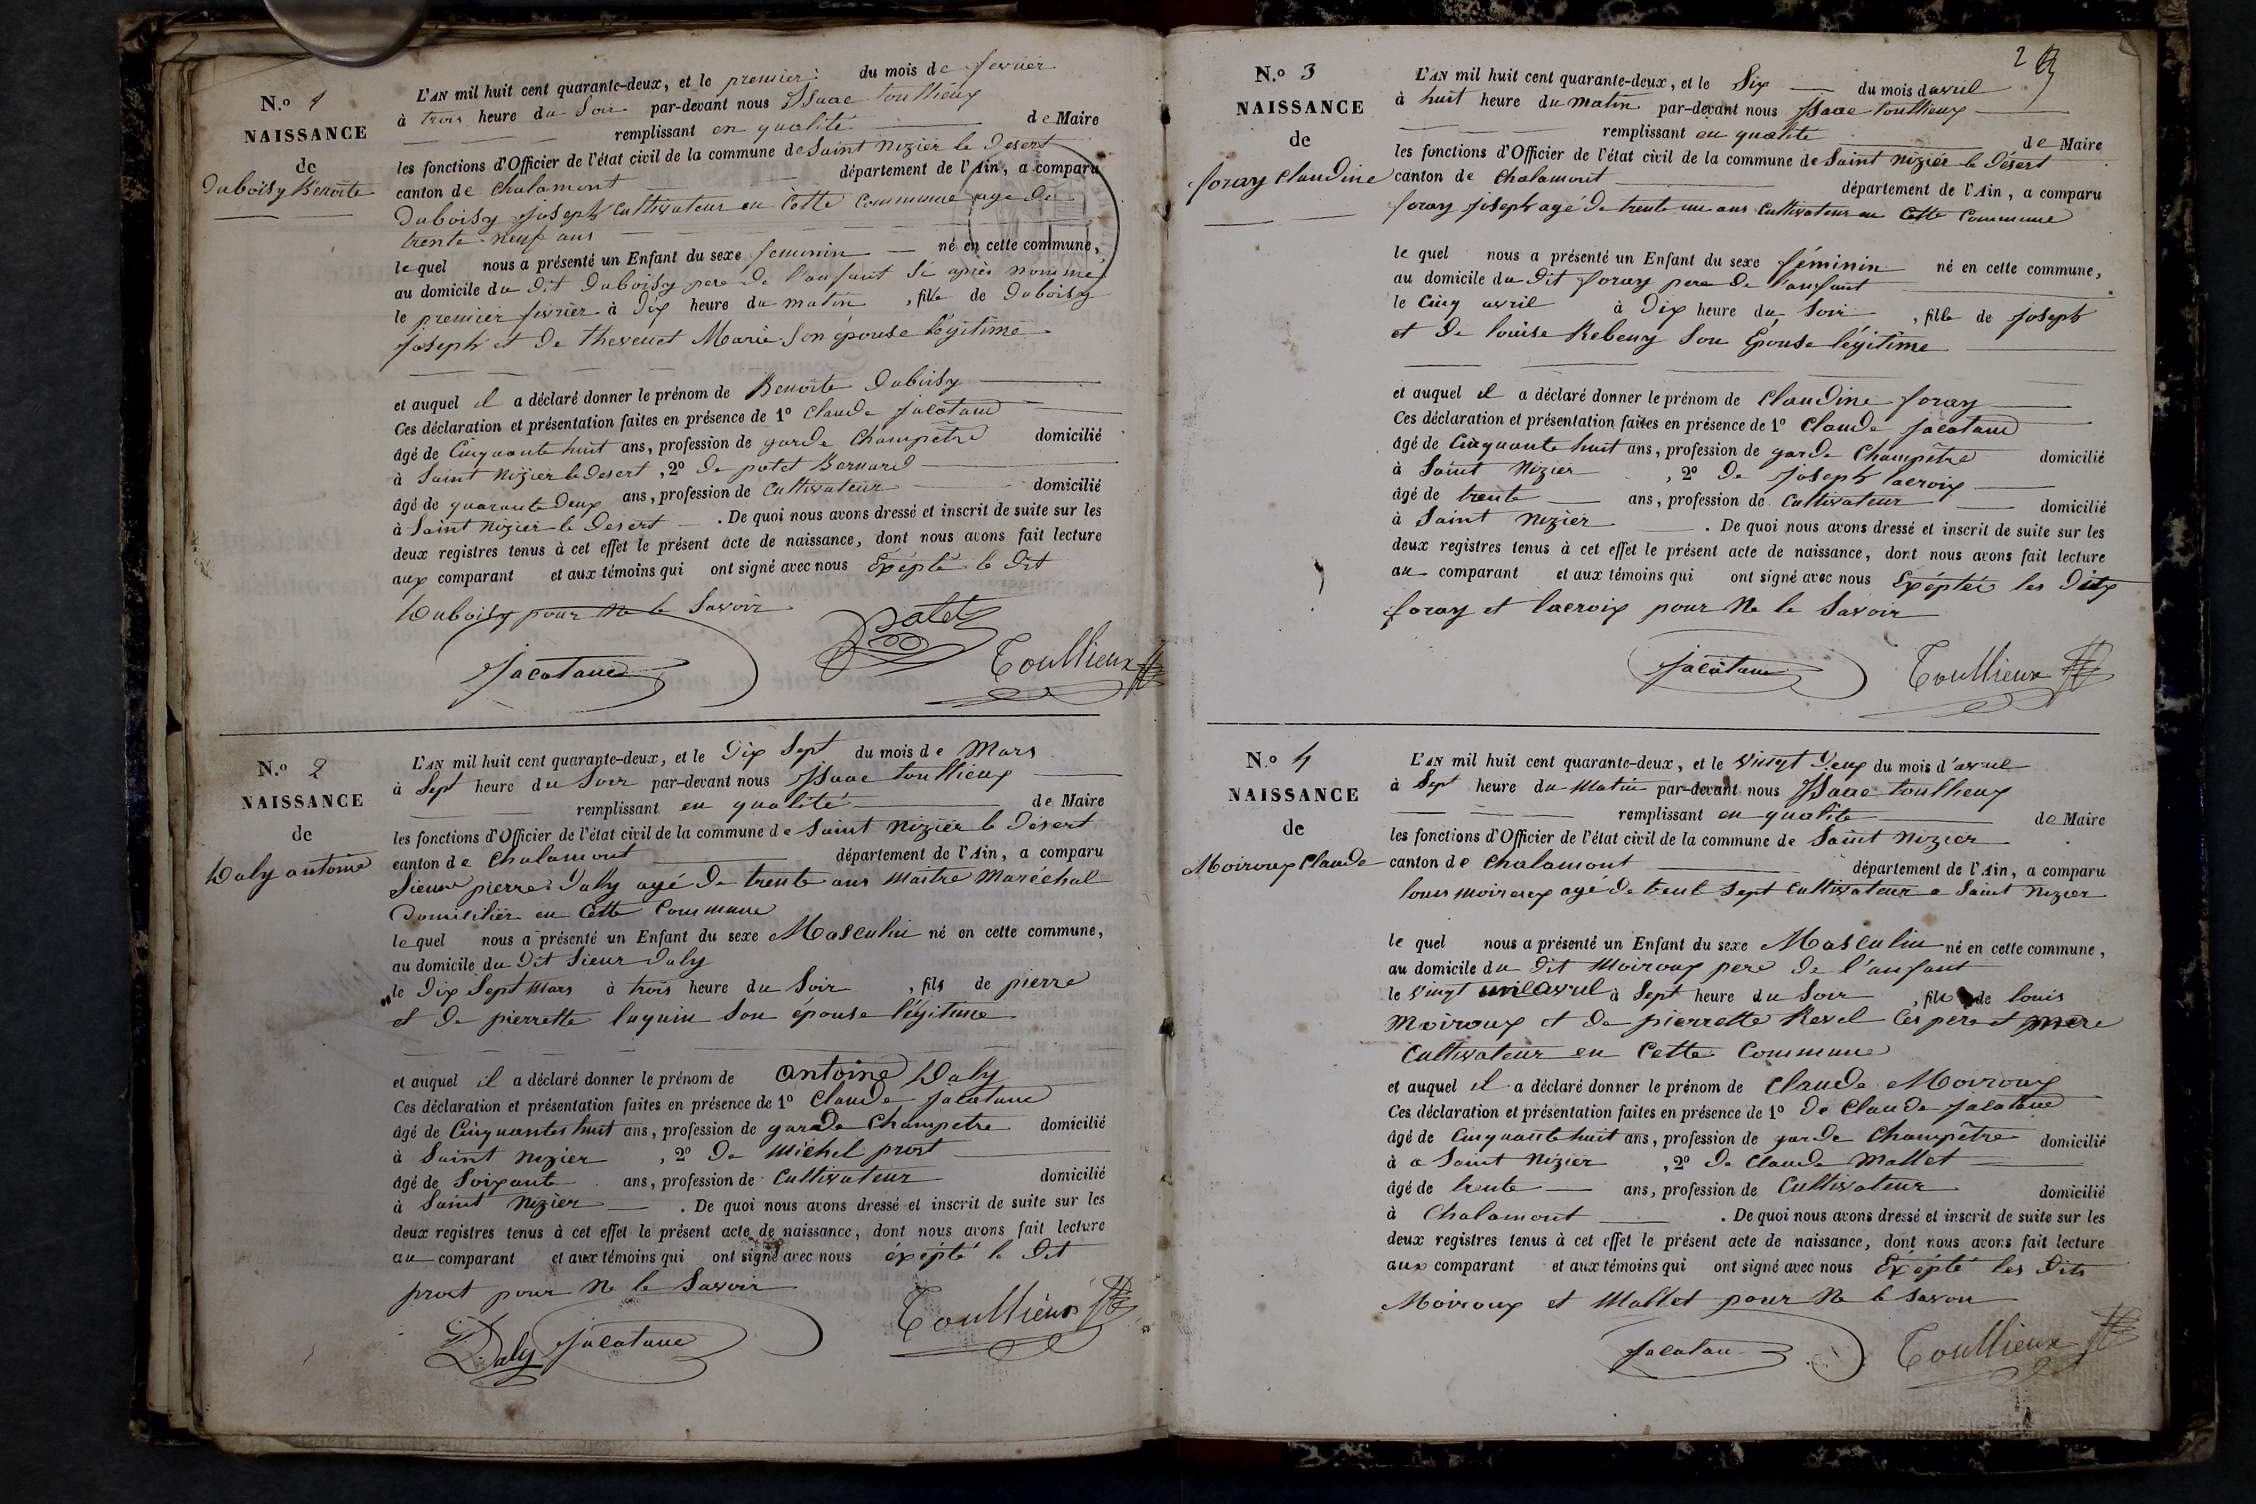 N.o 1
NAISSANCE
de
Duboisy Benoite
L'AN mil huit cent quarante-deux, et le premier du mois de fevrier
à trois heure du Soir par-devant nous Isaac toullieux
remplissant en qualité de Maire
les fonctions d'Officier de l'état civil de la commune de Saint nizier le Desert
canton de chalamont département de l'Ain, a comparu
Duboisy joseph cultivateur en Cette Commune age de
trente neuf ans
le quel nous a présenté un Enfant du sexe feminin né en cette commune,
au domicile du dit Duboisy pere de l'anfant si après nommé
le premier fevrier à Dix heure du matin, fille de Duboisy
joseph et de thevenet Marie Son épouse légitime
et auquel il a déclaré donner le prénom de Benoite Duboisy
Ces déclaration et présentation faites en présence de 1º Claude jacotand
âgé de Cinquante huit ans, profession de garde Champêtre domicilié
à Saint Nizier le desert, 2º de potet Bernard
âgé de quarante Deux ans, profession de Cultivateur domicilié
à Saint Nizier le Desert. De quoi nous avons dressé et inscrit de suite sur les
deux registres tenus à cet effet le présent acte de naissance, dont nous avons fait lecture
aux comparant et aux témoins qui ont signé avec nous Exépté le dit
Duboisy pour Ne le Savoir
Jacotand Potet Toullieux
N.o 2
NAISSANCE
de
Daly antoine
L'AN mil huit cent quarante-deux, et le Dix Sept du mois de Mars
à Sept heure du Soir par-devant nous Isaac toullieux
remplissant en qualité de Maire
les fonctions d'Officier de l'état civil de la commune de Saint nizier le Désert
canton de Chalamont département de l'Ain, a comparu
Sieur pierre Daly agé de trente ans Maitre Maréchal
Domicilier en Cette Commune
le quel nous a présenté un Enfant du sexe Masculin né en cette commune,
au domicile du Dit Sieur Daly
le Dix Sept Mars à trois heure du Soir, fils de pierre
et de pierrette luquin Son épouse légitime
et auquel il a déclaré donner le prénom de antoine Daly
Ces déclaration et présentation faites en présence de 1º Claude jacotand
âgé de Cinquante huit ans, profession de garde Champetre domicilié
à Saint Nizier, 2º de Michel prost
âgé de Soixante ans, profession de Cultivateur domicilié
à Saint Nizier. De quoi nous avons dressé et inscrit de suite sur les
deux registres tenus à cet effet le présent acte de naissance, dont nous avons fait lecture
au comparant et aux témoins qui ont signé avec nous éxépté le Dit
prost pour Ne le Savoir
Daly Jacotand Toullieux
2
N.o 3
NAISSANCE
de
foray claudine
L'AN mil huit cent quarante-deux, et le Six du mois d'avril
à huit heure du matin par-devant nous Isaac toullieux
remplissant en qualité de Maire
les fonctions d'Officier de l'état civil de la commune de Saint nizier le Désert
canton de Chalamont département de l'Ain, a comparu
foray joseph agé de trente un ans Cultivateur en Cette Commune
le quel nous a présenté un Enfant du sexe féminin né en cette commune,
au domicile du Dit foray pere de l'anfant
le Cinq avril à Dix heure du Soir, fille de joseph
et de louise Rebeuy Son Épouse légitime
et auquel il a déclaré donner le prénom de Claudine foray
Ces déclaration et présentation faites en présence de 1º Claude jacotand
âgé de Cinquante huit ans, profession de garde Champêtre domicilié
à Saint Nizier, 2º de joseph lacroix
âgé de trente ans, profession de Cultivateur domicilié
à Saint Nizier. De quoi nous avons dressé et inscrit de suite sur les
deux registres tenus à cet effet le présent acte de naissance, dont nous avons fait lecture
au comparant et aux témoins qui ont signé avec nous Exéptéi les Ditx
foray et lacroix pour Ne le Savoir
Jacotand Toullieux
N.o 4
NAISSANCE
de
Moiroux Claude
L'AN mil huit cent quarante-deux, et le Vingt Deux du mois d'avril
à Sept heure du Matin par-devant nous Isaac toullieux
remplissant en qualité de Maire
les fonctions d'Officier de l'état civil de la commune de Saint Nizier
canton de Chalamont département de l'Ain, a comparu
louis moiroux agé de trent Sept Cultivateur a Saint Nizier
le quel nous a présenté un Enfant du sexe Masculin né en cette commune,
au domicile du dit Moiroux pere de l'anfant
le Vingt un avril à Sept heure du Soir, fils de louis
Moiroux et de pierrette Revel Ces pere et mere
Cultivateur en Cette Commune
et auquel il a déclaré donner le prénom de Claude Moiroux
Ces déclaration et présentation faites en présence de 1º de Claude jacotand
âgé de Cinquante huit ans, profession de garde Champêtre domicilié
à a Saint Nizier, 2º de Claude Mallet
âgé de trente ans, profession de Cultivateur domicilié
à Chalamont. De quoi nous avons dressé et inscrit de suite sur les
deux registres tenus à cet effet le présent acte de naissance, dont nous avons fait lecture
aux comparant et aux témoins qui ont signé avec nous Exépté les Dits
Moiroux et Mallet pour Ne le Savoir
Jacotan Toullieux